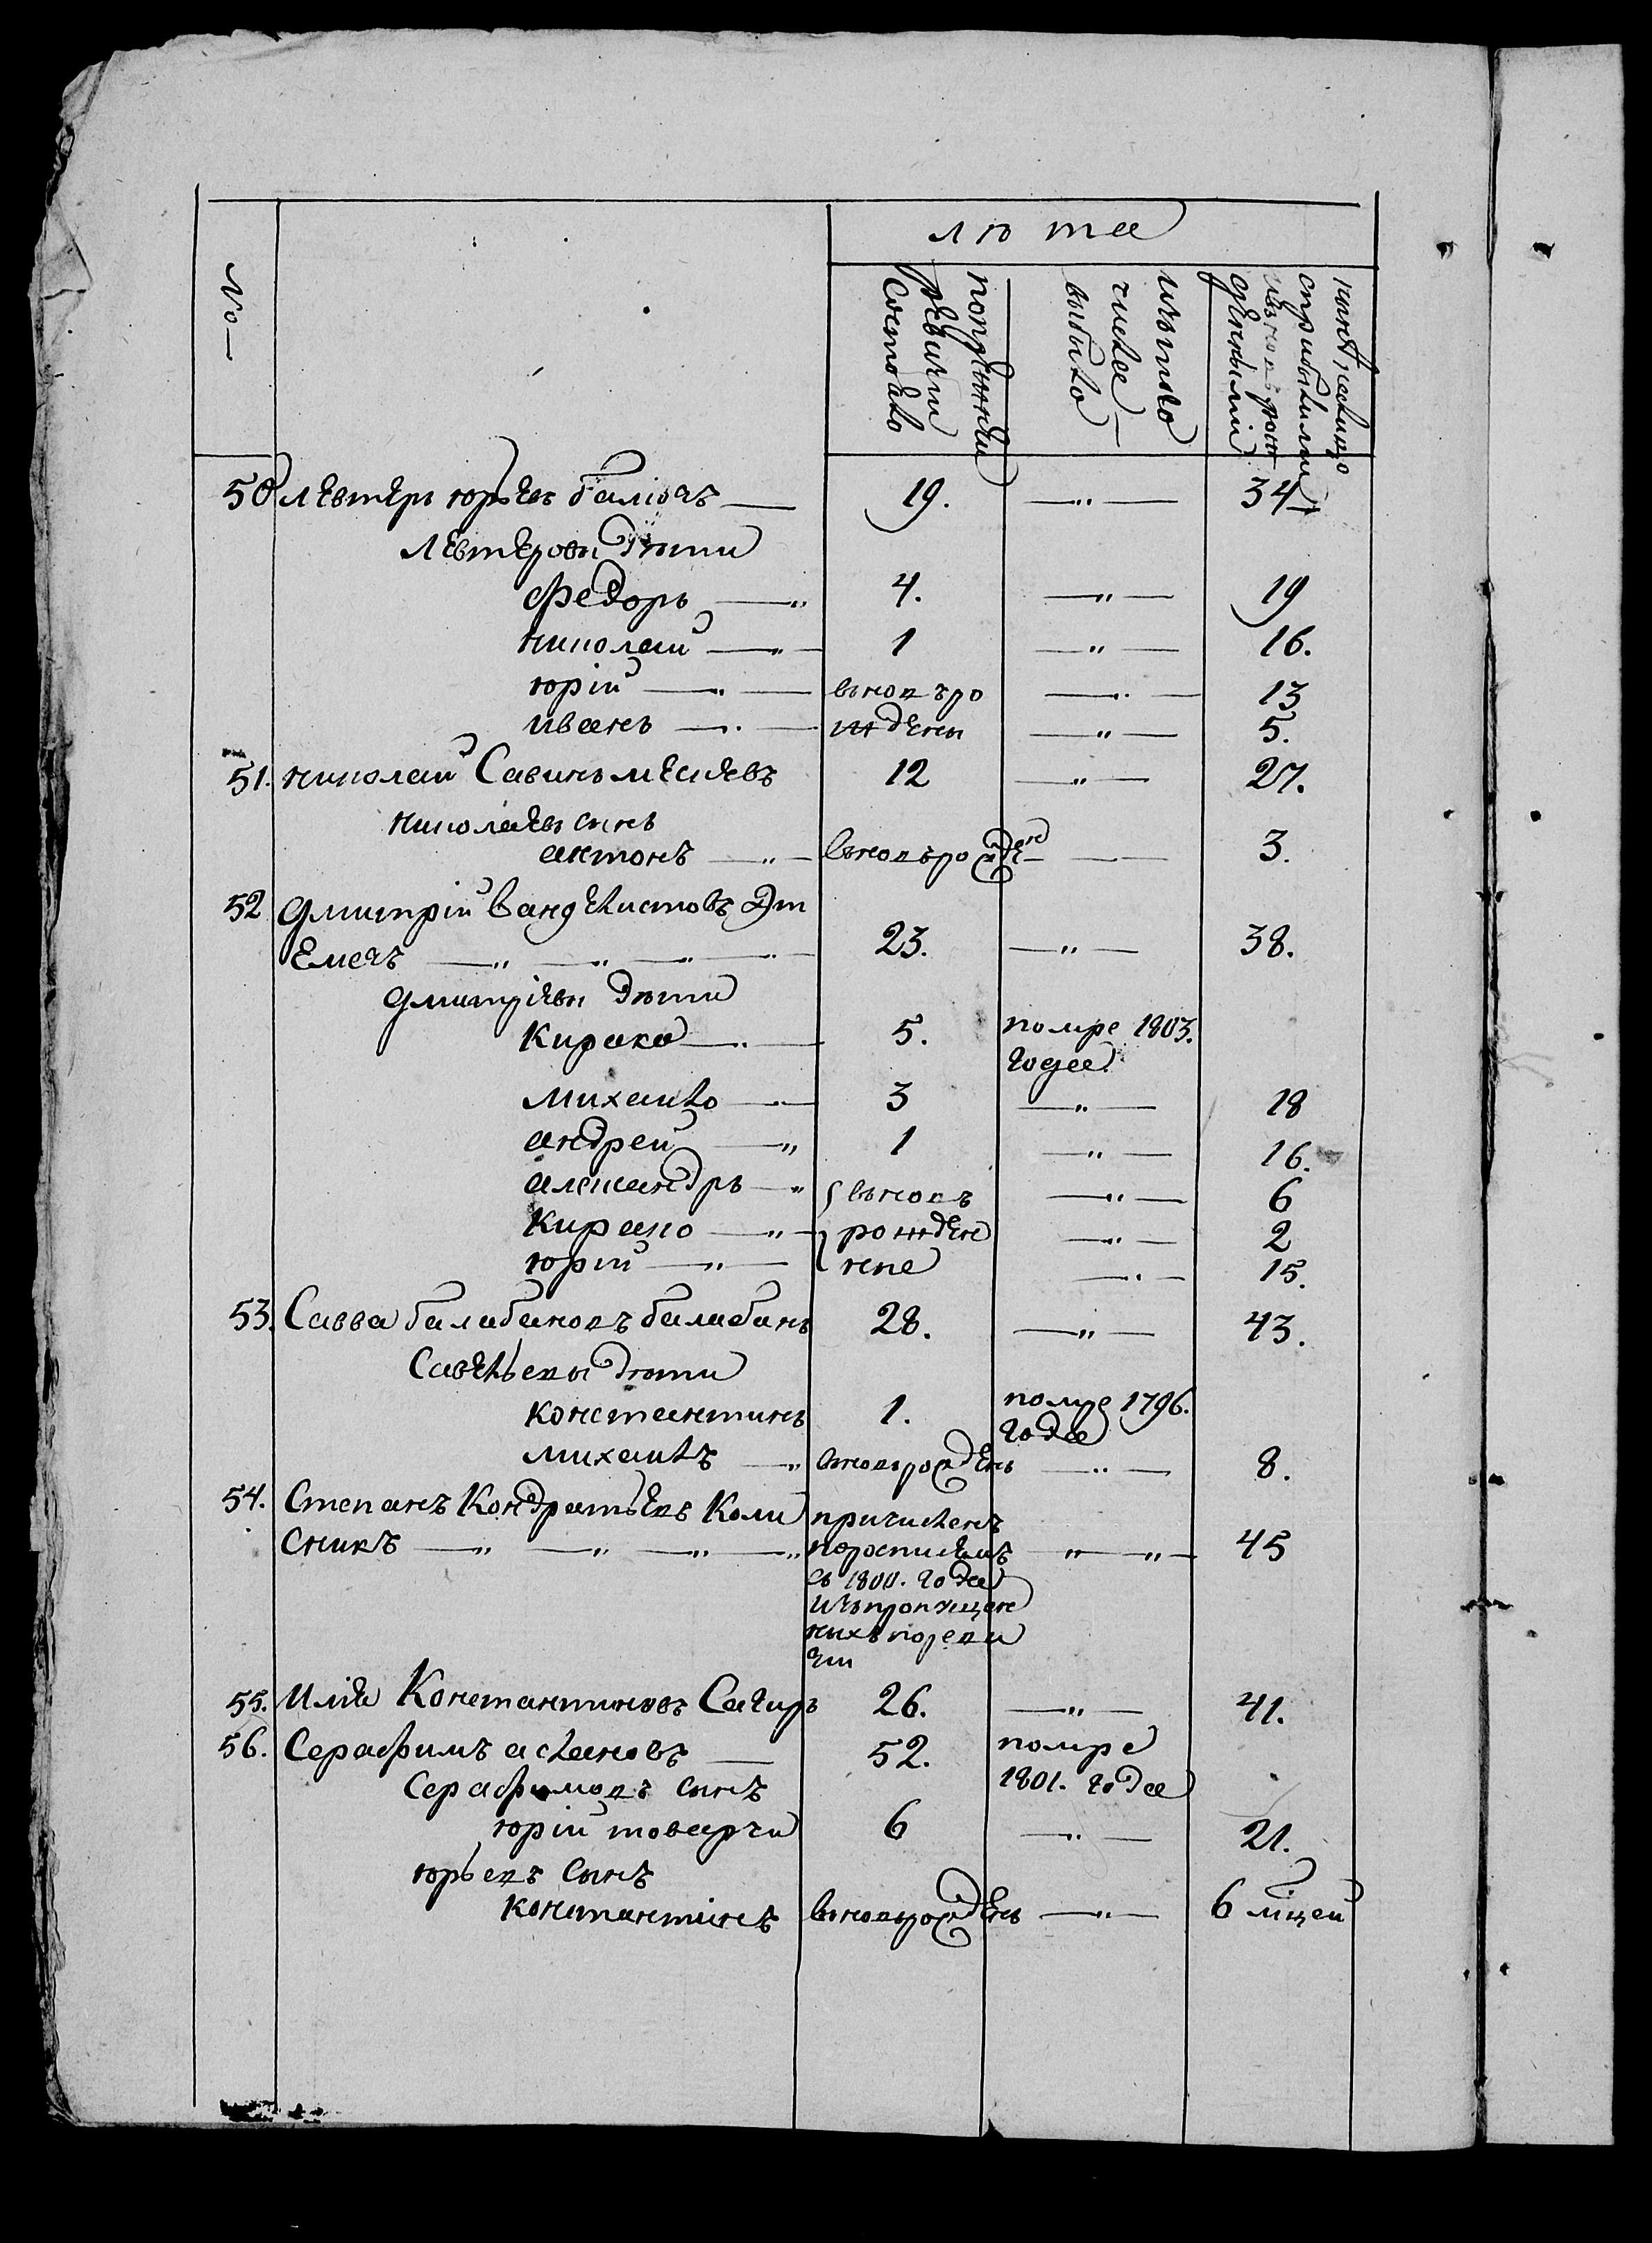 лю та
№
попрежней
ревизии
состояло
изътого
числа
выбыло
ныне налицо
сприбылыми
ивновърож
денными
50 левтеръ юрьевъ балiозъ — 19. —„— 34
левтеровы дети
федоръ —„ 4. —„— 19
николай —„— 1 —„— 16.
юрiй —„— вновъро —„— 13
иванъ —„— ждены —„— 5.
51. николай Савинъ 12 —„— 27.
николаевъ сынъ
антонъ —„— вновърожденъ —— 3.
52 дмитрiй
Емечъ —„—„—„— 23. —„— 38.
дмитрiевы дети
Кирако —„— 5. помре 1803.
года
михаило —„— 3 —„— 18
андрей —„ 1 —„— 16.
александръ —„ вновъ —„— 6
Кирако —„— рожден —„— 2
юрiй —„— ные —„— 15.
53. Савва балабановъ балабанъ 28. —„— 43.
Савельевы дети
константинъ 1. помре 1796.
года
михаилъ —„ вноврожденъ —„— 8.
54. Степанъ Кондратьевъ Коли причисленъ
сникъ —„—„—„—„ —„—„— 45
съ 1800. года
изъпропущен
ныхъпореви
зии
55. Илiя Константиновъ Сагиръ 26. —„— 41.
56. Серафимъ аслановъ — 52. помре
1801. года
Серафимовъ сынъ
юрiй товарчи 6 —„— 21.
юрьевъ сынъ
константiнъ вноврожденъ —„— 6 мiцей